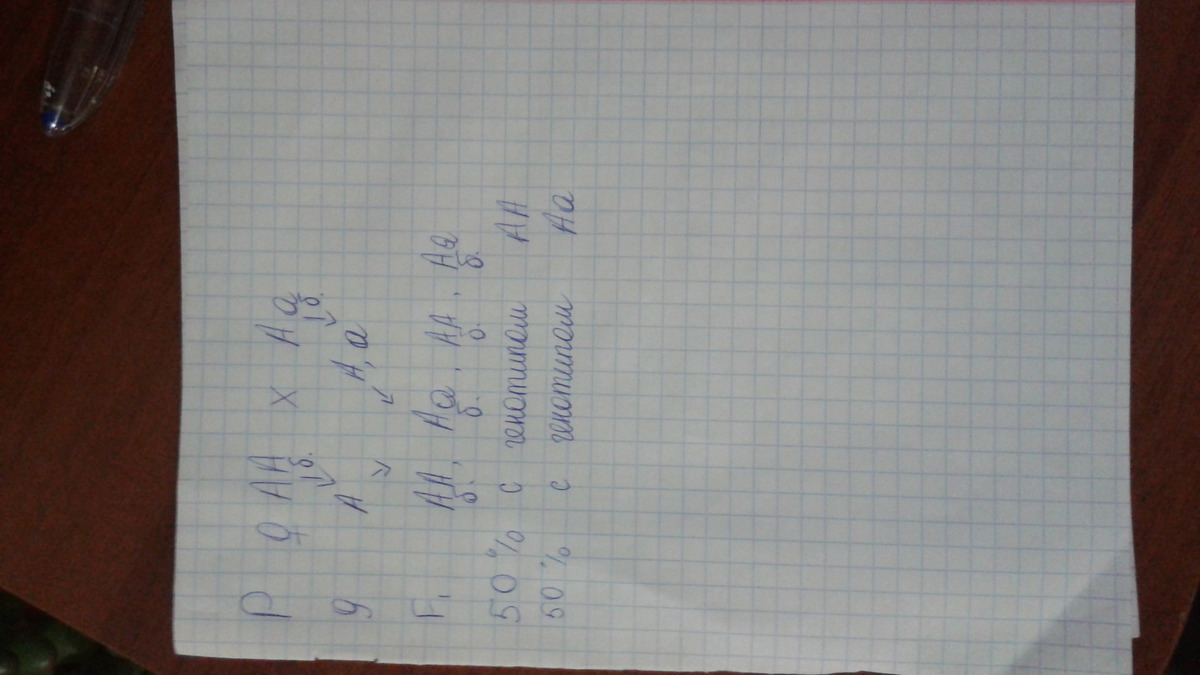 P ♀ AA x Aa
б. б.
g A A, a
F₁ AA, Aa, AA, Aa
б. б. б. б.
50% с генотипом AA
50% с генотипом Aa